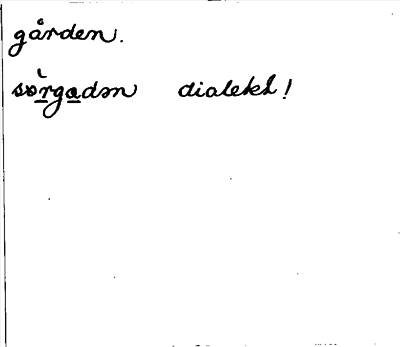 gården.
sòrgadən dialekt!